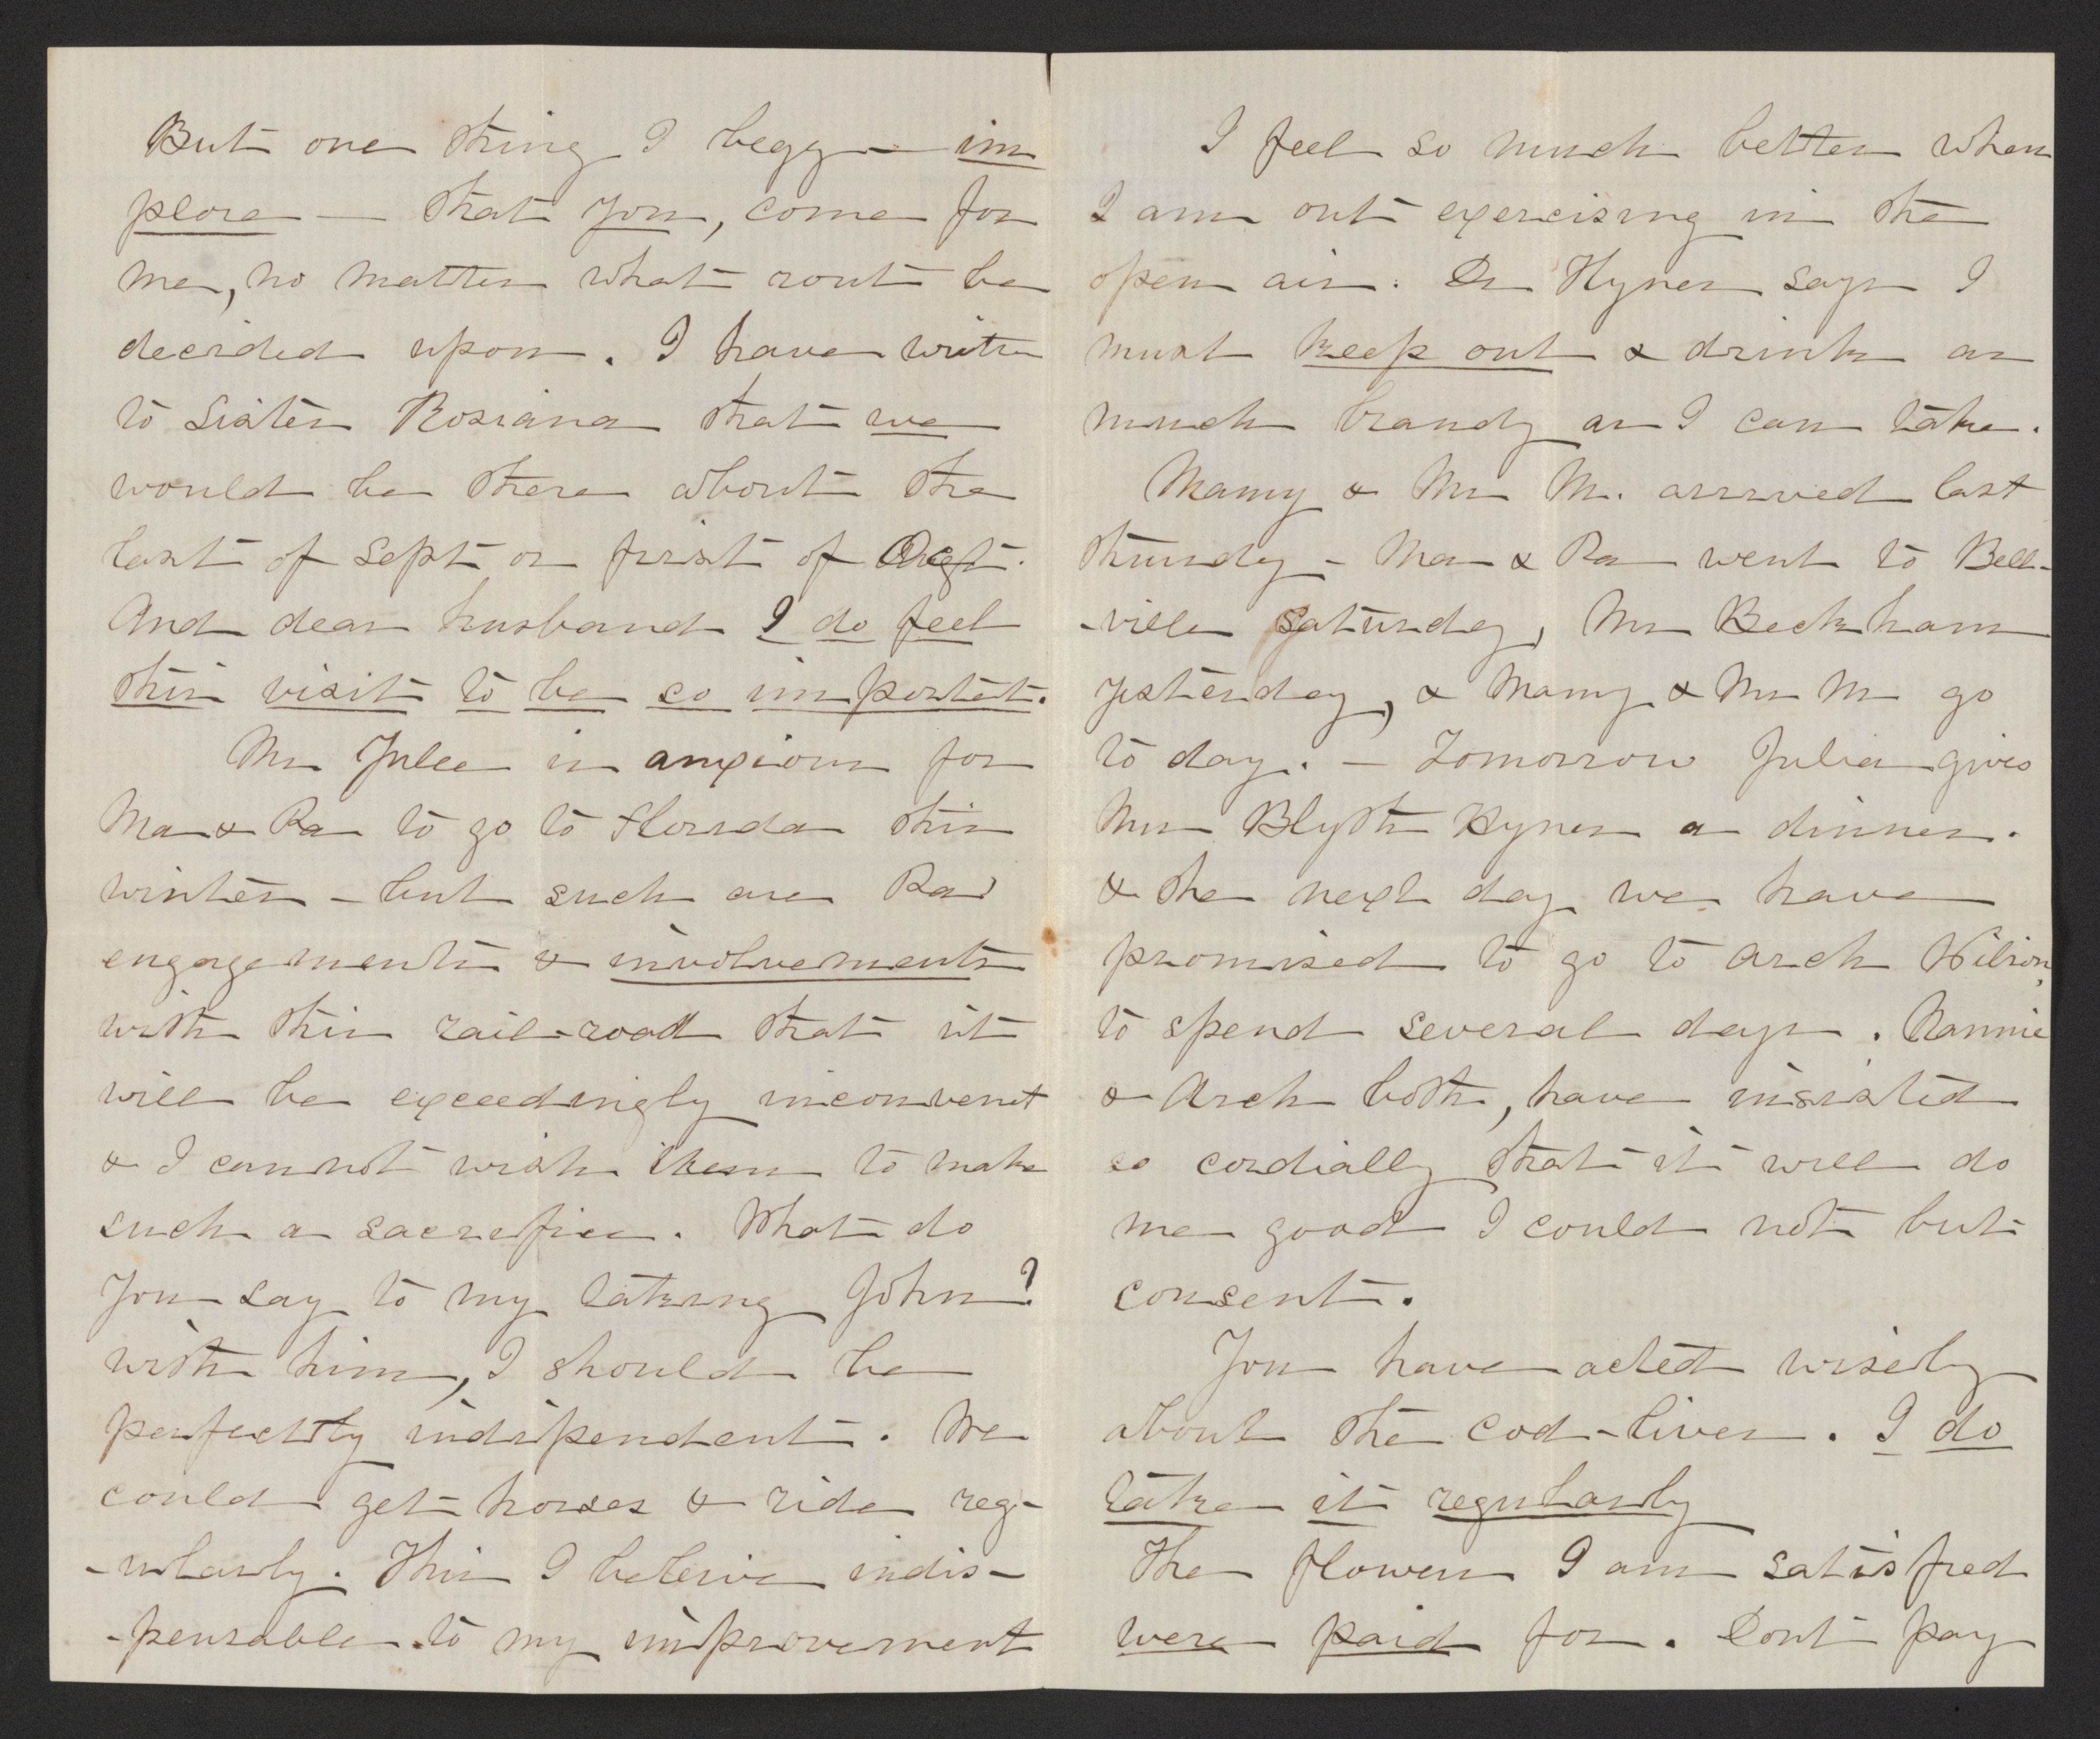 But one thing I begg — im
plore — that you, come for
me, no matter what rout be
decided upon. I have writen
to Sister Rosiana that we
would be there about the
last of Sept or first of Oct.
And dear husband I do feel
this visit to be so importat.
Mr Yulee is anxious for
Ma & Pa to go to Florida this
winter – but such are Pas
engagements & involvements
with this rail-road that it
will be exceedingly inconvent
& I cannot wish them to make
such a sacrifice. What do
you say to my taking John?
with him, I should be
perfectly indipendent. We
could get horses & ride reg-
-ularly. This I beleive indis-
-pensable to my improvement
I feel so much better when
I am out exercising in the
open air. Dr Hynes says I
must keep out & drink as
much brandy as I can take.
Mamy & Mr M. arrived last
Thursdy – Ma & Pa went to Bell-
-ville Saturday, Mr Beckham
yesterday, & Mamy & Mr M go
to day. – Tomorrow Julia gives
Mrs Blyth Hynes a dinner.
& the next day we have
promised to go to Arch Wilson,
to spend several days. Nannie
& Arch both, have insisted
so cordially that it will do
me good I could not but
consent.
You have acted wisely
about the cod-liver. I do
take it regularly
The flowers I am satisfied
were paid for. Dont pay